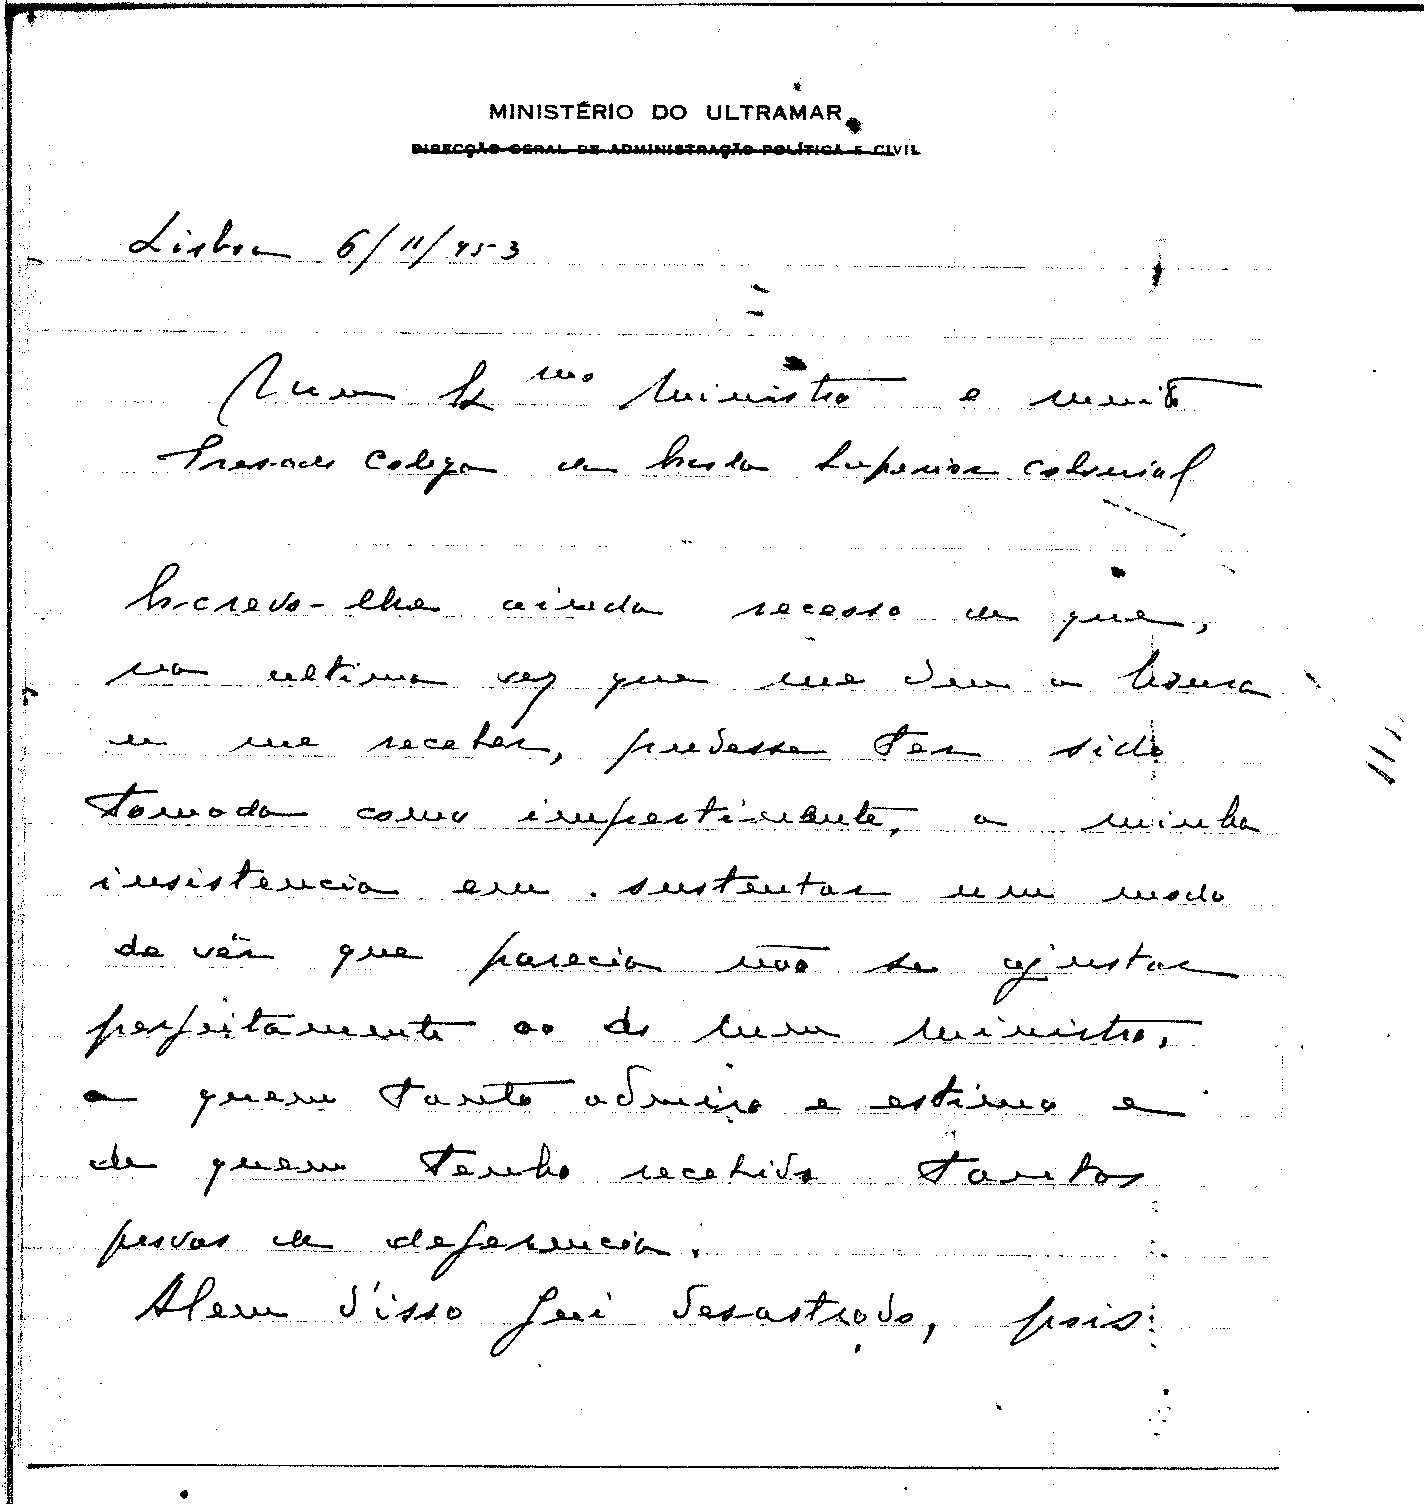 MINISTÉRIO DO ULTRAMAR
DIRECÇÃO GERAL DE ADMINISTRAÇÃO POLÍTICA E CIVIL
Lisboa 6/11/953
Meu Ex.mo Ministro e muito
Presado Colega da Escola Superior Colonial
Escrevo-lhe ainda receoso de que,
na ultima vez que me deu a honra
de me receber, pudesse ter sido
tomada como impertinente, a minha
insistencia em sustentar um modo
de vêr que parecia não se ajustar
perfeitamente ao do meu Ministro,
a quem tanto admiro e estimo e
de quem tenho recebido tantas
provas de deferencia.
Alem d'isso fui desastrado, pois